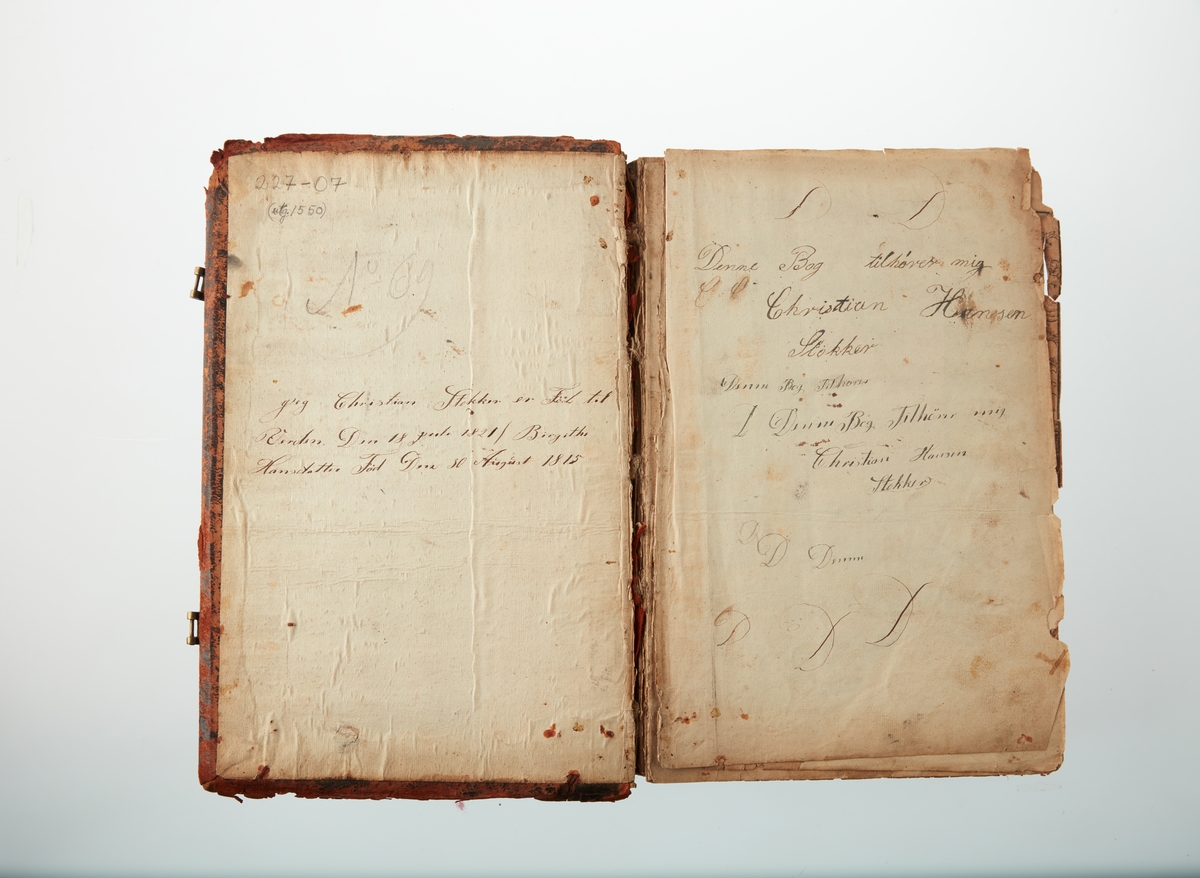 227-07
(utg. 1550)
No 69
Christian Stokker er Föd til
Verden Den 18 1821/ Birgithe
Hansdatter Föd Den 30 August 1815
D D
Denne Bog tilhører mig
C C Christian Hansen
Stokker
Denne Bog Tilhører
1 Denne Bog Tilhörer mig
Christian Hansen
Stokker
D D Denne
D D D